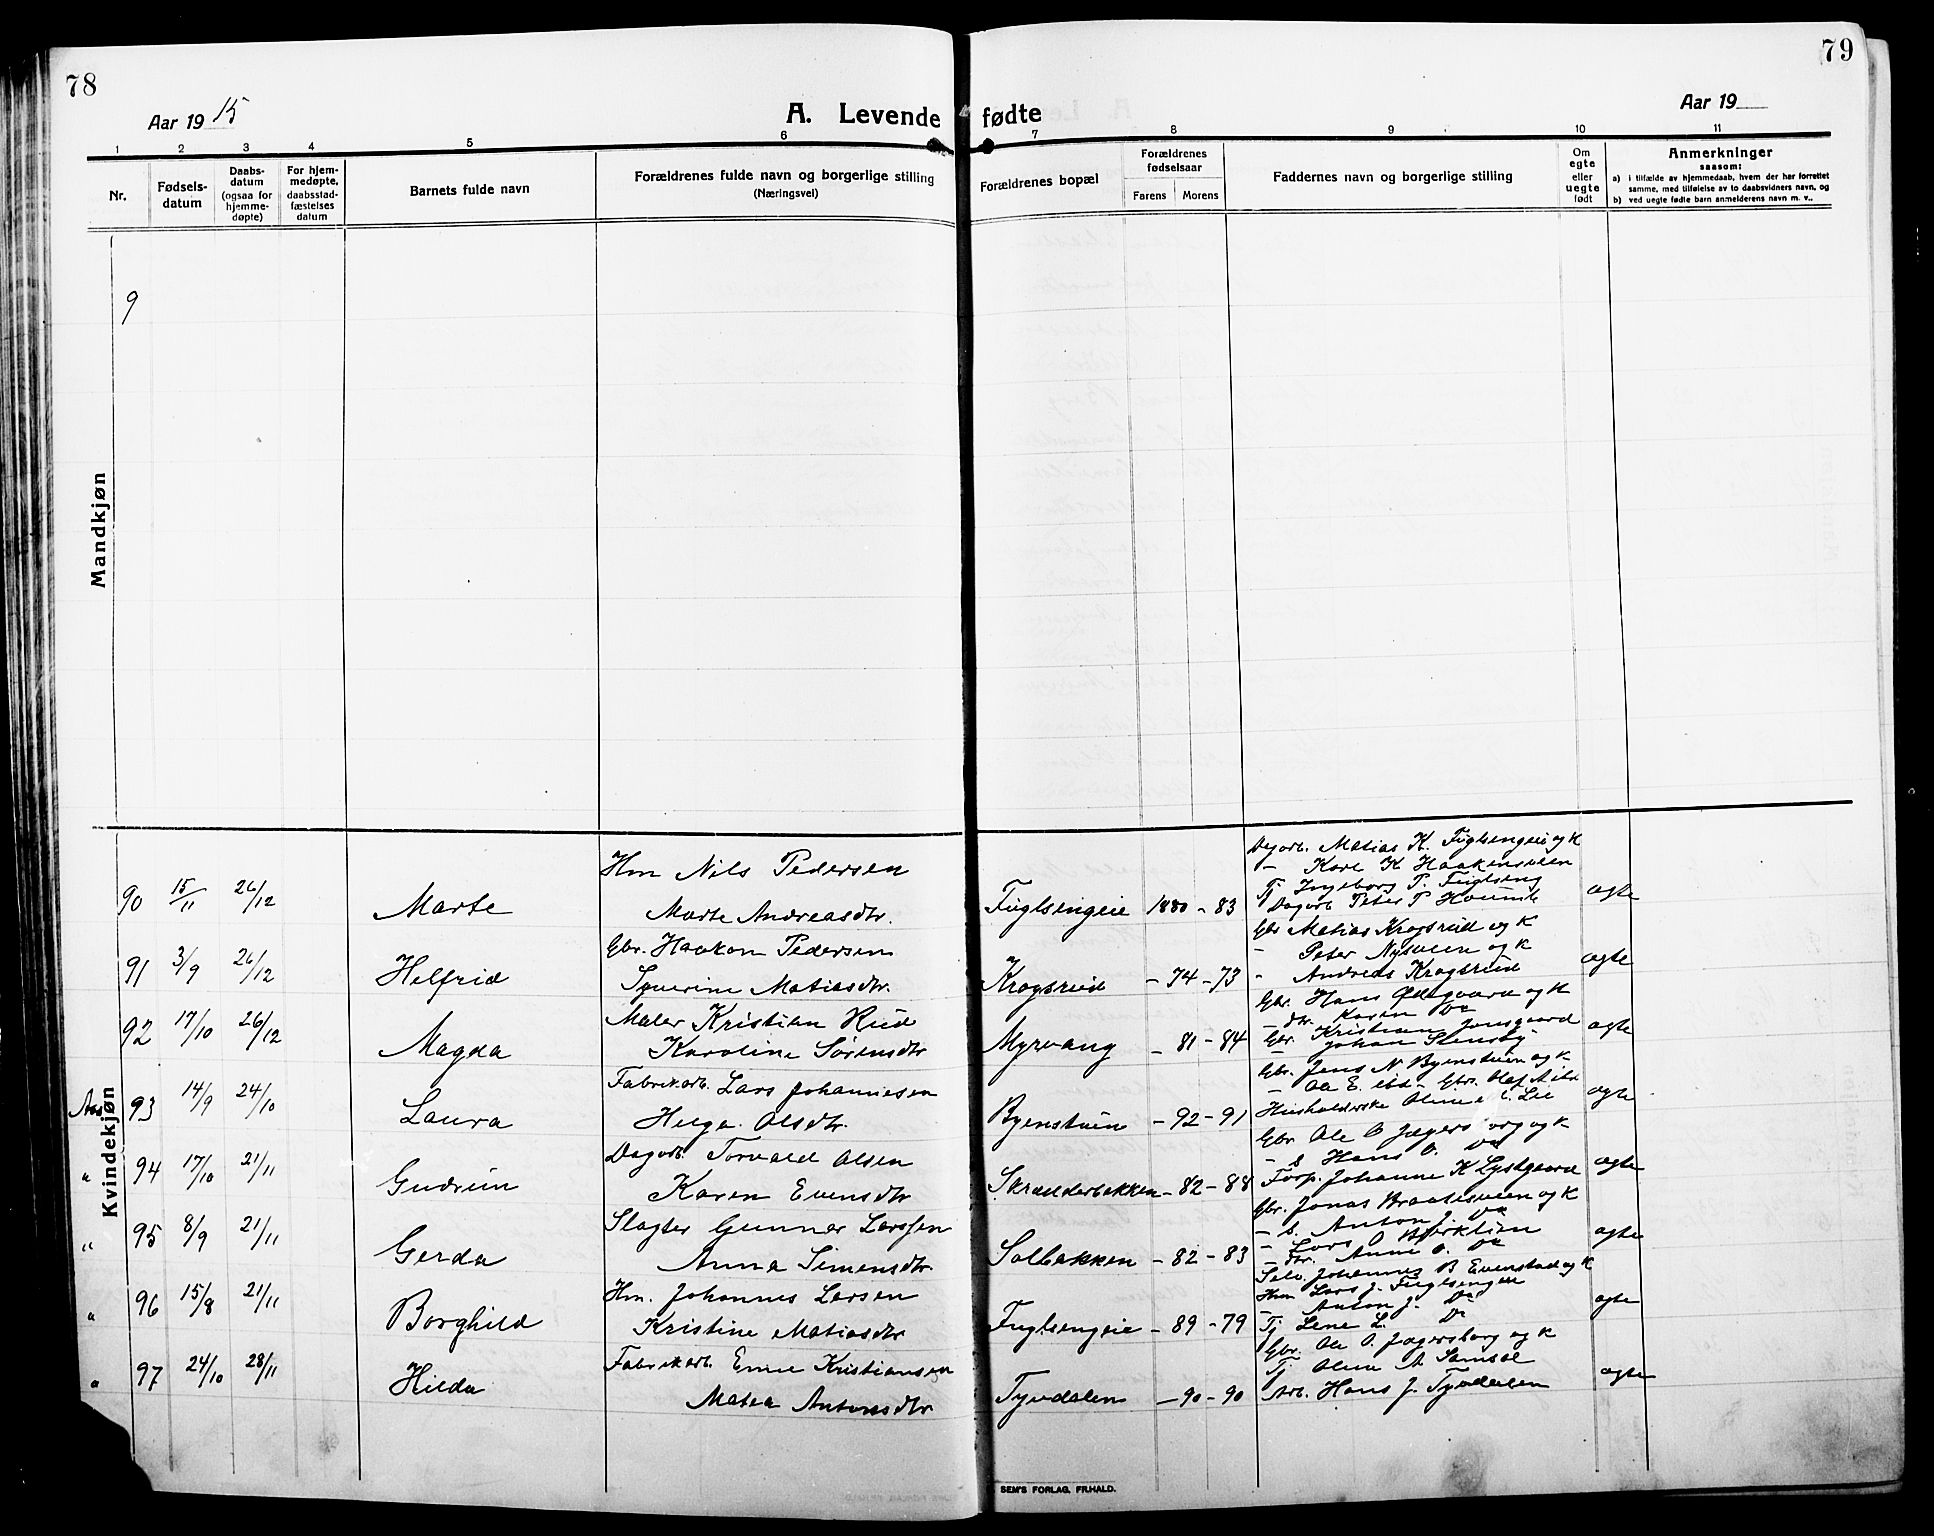 78
79
Aar 19 15
A. Levende fødte
Aar 19
1 2 3 4 5 6 7 8 9 10 11
Nr.
Fødsels-
datum
Daabs-
datum
(ogsaa for
hjemme-
døpte)
For hjem-
medøpte,
daabsstad-
fæstelses
datum
Barnets fulde navn
Forældrenes fulde navn og borgerlige stilling
(Næringsvei)
Forældrenes bopæl
Forældrenes
fødselsaar
Farens Morens
Faddernes navn og borgerlige stilling
Om
egte
eller
uegte
født
Anmerkninger
saasom:
a) i tilfælde av hjemmedaab, hvem der har forrettet
samme, med tilføielse av to daabsvidners navn, og
b) ved uegte fødte barn anmelderens navn m. v..
Mandkjøn
9
Kvindekjøn
90 15/11 26/12 Marte
Hm Nils Pedersen
Marte Andreasdtr.
Fuglsengeie 1880 - 83
Dagarb. Matias K. Fuglsengeie og k
- Karl K Haakensveen
Tj Ingeborg P. Fuglseng
Dagarb Peter P
ægte
91 3/9 26/12 Helfrid
Gbr. Haakon Pedersen
Syverine Matiasdtr.
Kragsrud - 74 - 73
Gbr Matias Kragsrud og k
- Peter Nysveen og k
- Andreas Kragsrud
ægte
92 17/10 26/12 Magda
Maler Kristian Rud
Karoline Sørensdtr
Myrvang - 81 - 84
Gbr. Hans Ødegaard og k
- dtr. Karen Do
Gbr. Kristian Jonsgaard
Johan Stensby
ægte
93 14/9 24/10 Laura
Fabrikarb. Lars Johannesen
Helga Olsdtr.
Byenstuen - 92 - 91
Gbr. Jens N Byenstuen og k
- Ole E. ibd - Gbr. Olaf A ibd
Husholderske Oline Lie
ægte
" 94 17/10 21/11 Gudrun
Dagarb. Torvald Olsen
Karen Evensdtr
Skrænderbakken - 82 - 88
Gbr Ole O Jægersborg og k
- s Hans O. Do
Forp. Johanne K Lystgaard
ægte
" 95 8/9 21/11 Gerda
Slagter Gunnar Larssen
Anna Simensdtr.
Solbakken - 82 - 83
Gbr. Jonas Braatesveen og k
- s. Anton J. Do
- Lars O Bjerklien
- dtr. Anne O. Do
ægte
" 96 15/8 21/11 Borghild
Hm. Johannes Larsen
Kristine Matiasdtr
Fuglsengeie - 89 - 79
Selv. Johannes B Evenstad og k
Hm Lars J. Fuglsengeie
- Anton J. Do
Tj Lene L. Do
ægte
" 97 24/10 28/11 Hilda
Fabrikarb. Emil Kristiansen
Matea Antonsdtr
Tyvdalen - 90 - 90
Gbr. Ole O. Jægersborg og k
Tj Oline A Samsal
Arb. Hans J. Tyvdalen
ægte
SEM'S FORLAG, FR.HALD.